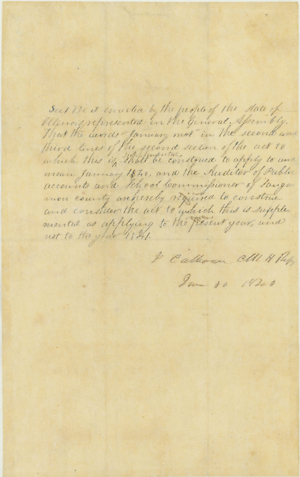 Sec 1 Be it enacted by the people of the State of
Illinois, represented in the General Assembly,
That the words "January next" in the second and
third lines of the second section of the act to
which this is supplemental shall be construed to apply to and
mean January 1840, and the Auditor of Public
accounts and School Commissioner of Sanga
mon county are hereby required to construe
and consider the act to which this is supple
mental as applying to the present year, and
not to the year 1841.
J Calhoun Clk H Reps
Jan 30 1840